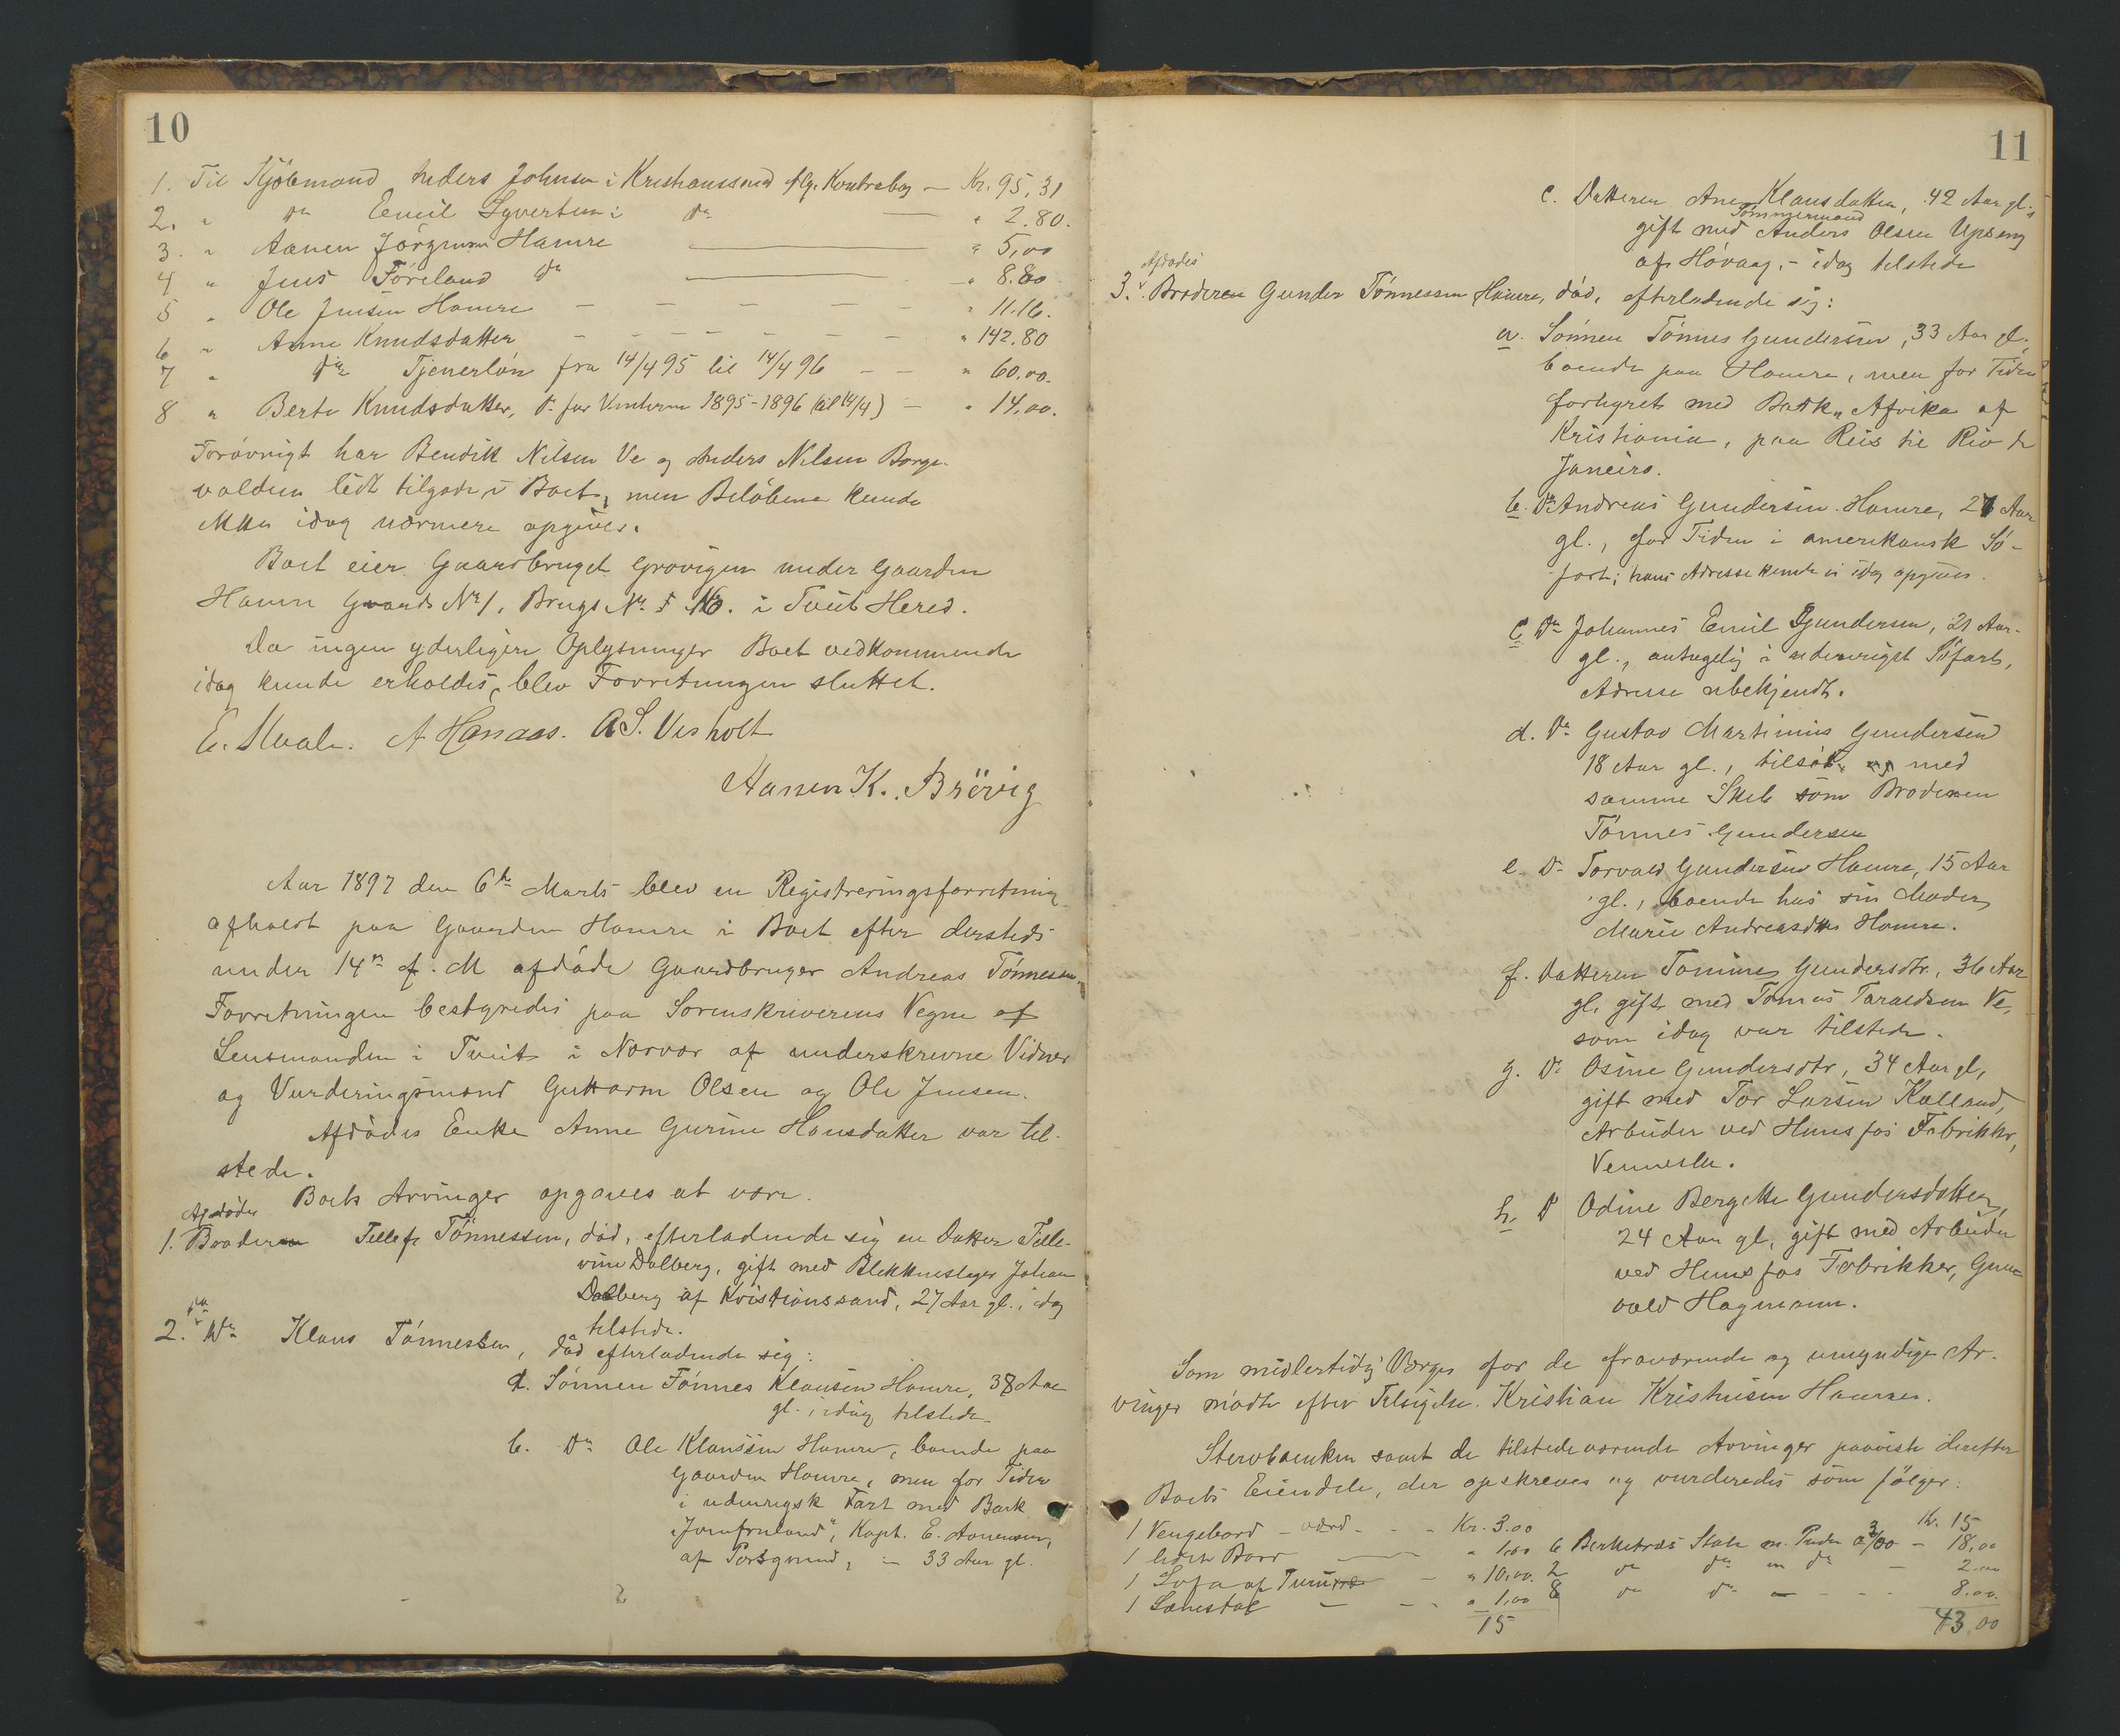 10
1. Til Kjöbmand Anders Johnsen i Kristianssand flg. Kontrabog — Kr. 95,31
2. " do Emil Syvertsen i do — " 2.80.
3. " Aanen Jörgensen Hamre — " 5,00
4 " Jens Föreland do — " 8.80
5 " Ole Jensen Hamre — — — — — " 11.16.
6 " Anne Knudsdatter — — — — — — " 142.80
7 " do Tjenerlön fra 14/4 95 til 14/4 96 — — " 60,00.
8 " Berte Knudsdatter, do for Vinteren 1895-1896 (til 14/4) — " 14,00.
Forövrigt har Bendik Nilsen Ve og Anders Nilsen Borge-
valden lidt tilgode i Boet, men Belöbene kunde
ikke idag nærmere opgives.
Boet eier Gaardbruget Grovigen under Gaarden
Hamre Gaards No 1, Brugs No 16. i Tveit Hered.
Da ingen yderligere Oplysninger Boet vedkommende
idag kunde erholdes, blev Forretningen sluttet.
E. Maale. A Hanaas. A S. Visholt
Aanen K. Brövig
Aar 1897 den 6te Marts blev en Registreringsforretning
afholdt paa Gaarden Hamre i Boet efter dersteds
under 14de f. M afdöde Gaardbruger Andreas Tönnesen.
Forretningen bestyredes paa Sorenskriverens Vegne af
Lensmanden i Tveit i Nærvær af underskrevne Vidner
og Vurderingsmænd Guttorm Olsen og Ole Jensen.
Afdödes Enke Anne Gurine Hansdatter var til-
stede.
Boets Arvinger opgaves at være.
Afdöde
1. Broderen Tellef Tönnessen, död, efterladende sig en Datter Telle-
vine Dalberg, gift med Blikkenslager Johan
Dalberg af Kristianssand, 27 Aar gl. i dag
tilstede.
2. do Klaus Tönnessen, död efterladende sig:
a. Sönnen Tönnes Klausen Hamre, 38 Aar
gl., idag tilstede
b. do Ole Klaussen Hamre, boende paa
Gaarden Hamre, men for Tiden
i udenrigsk Fart med Bark
"Jomfruland", Kapt. E. Aanensen,
af Porsgrund, — 33 Aar gl.
11
c. Datteren Ane Klausdatter, 42 Aar gl.,
Tömmermand
gift med Anders Olsen Upseng
af Hövaag, — idag tilstede
Afdödes
3. Broderen Gunder Tönnessen Hamre, död, efterladende sig:
a. Sönnen Tönnes Gundersen, 33 Aar gl.,
boende paa Hamre, men for Tiden
forhyret med Bark "Afrika" af
Kristiania, paa Reis til Rio de
Janeiro.
b. do Andreas Gundersen Hamre, 27 Aar
gl., for Tiden i amerikansk Sö-
fart; hans Adresse kunde ei idag opgives.
c. do Johannes Emil Gundersen, 21 Aar
gl., antagelig i udenrigsk Söfart,
Adresse ubekjendt.
d. do Gustav Martinius Gundersen
18 Aar gl., tilsös og med
samme Skib som Broderen
Tönnes Gundersen
e. do Torvald Gundersen Hamre, 15 Aar
gl., boende hos sin Moder,
Marie Andreasdtr Hamre.
f. Datteren Tomine Gundersdtr., 36 Aar
gl. gift med Tomas Taraldsen Ve,
som idag var tilstede.
g. do Osine Gundersdtr, 34 Aar gl,
gift med Tor Larsen Kalland,
Arbeider ved Hunsfos Fabrikker,
Vennesla.
h. do Odine Bergette Gundersdatter,
24 Aar gl, gift med Arbeider
ved Hunsfos Fabrikker, Gun-
vald Hagmann.
Som midlertidig Værge for de fraværende og umyndige Ar-
vinger mödte efter Tilsigelse Kristian Kristensen Hamre.
Stervboenken samt de tilstedeværende Arvinger paaviste derefter
Boets Eiendele, der opskreves og vurderedes som fölger:
1 Vengebord – værd – – – Kr. 3.00 Kr. 15
1 lidet Bord — " 1,00 6 Berketræs Stole m. Puder a 3/00 — 18,00
1 Sofa af — " 10,00. 2 do do m do — 2.00
1 Lænestol — " 1,00 8 do do — 8.00.
15 43.00